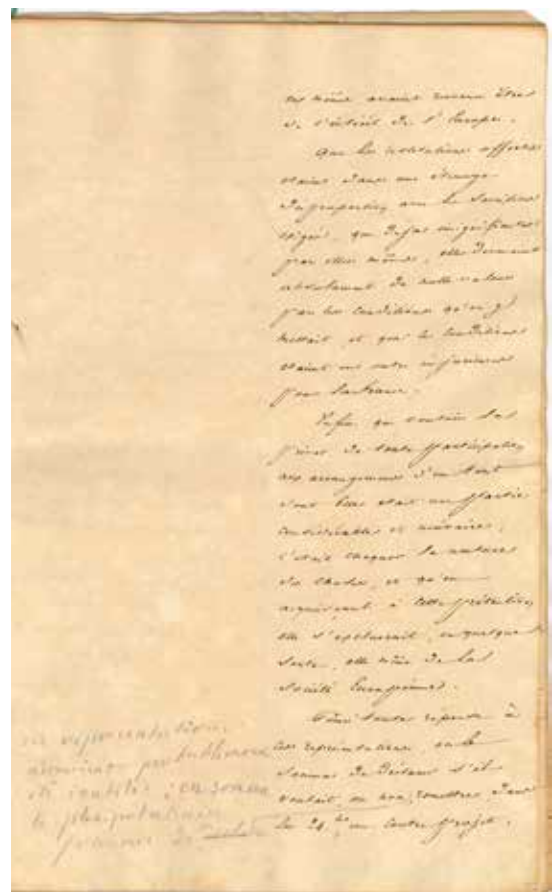 eux même avaient reconnu être
de l'intérêt de l'Europe.
Que les restitutions offertes
étaient dans une étrange
disproportion avec les sacrifices
exigés, que déjas insignifiantes
par elles mêmes, elles devenaient
absolument de nulle valeur
par les conditions qu'on y
mettait, et que les conditions
étaient en outre injurieuses
pour la france.
Enfin que vouloir la
priver de toute participation
aux arrangemens d'un tout
dont elle était une partie
considérable et nécessaire,
c'était choquer la nature
des choses, et qu'en
acquiesçant à cette prétention
elle s'exclurait, en quelque
sorte, elle même de la
Société Européenne.
Pour toute réponse à
ces représentations, on le
somma de déclarer s'il
voulait, ou non, remettre dans
les 24 hes un contre projet.
ces représentations
été inutiles; on somma
le plénipotentiaire